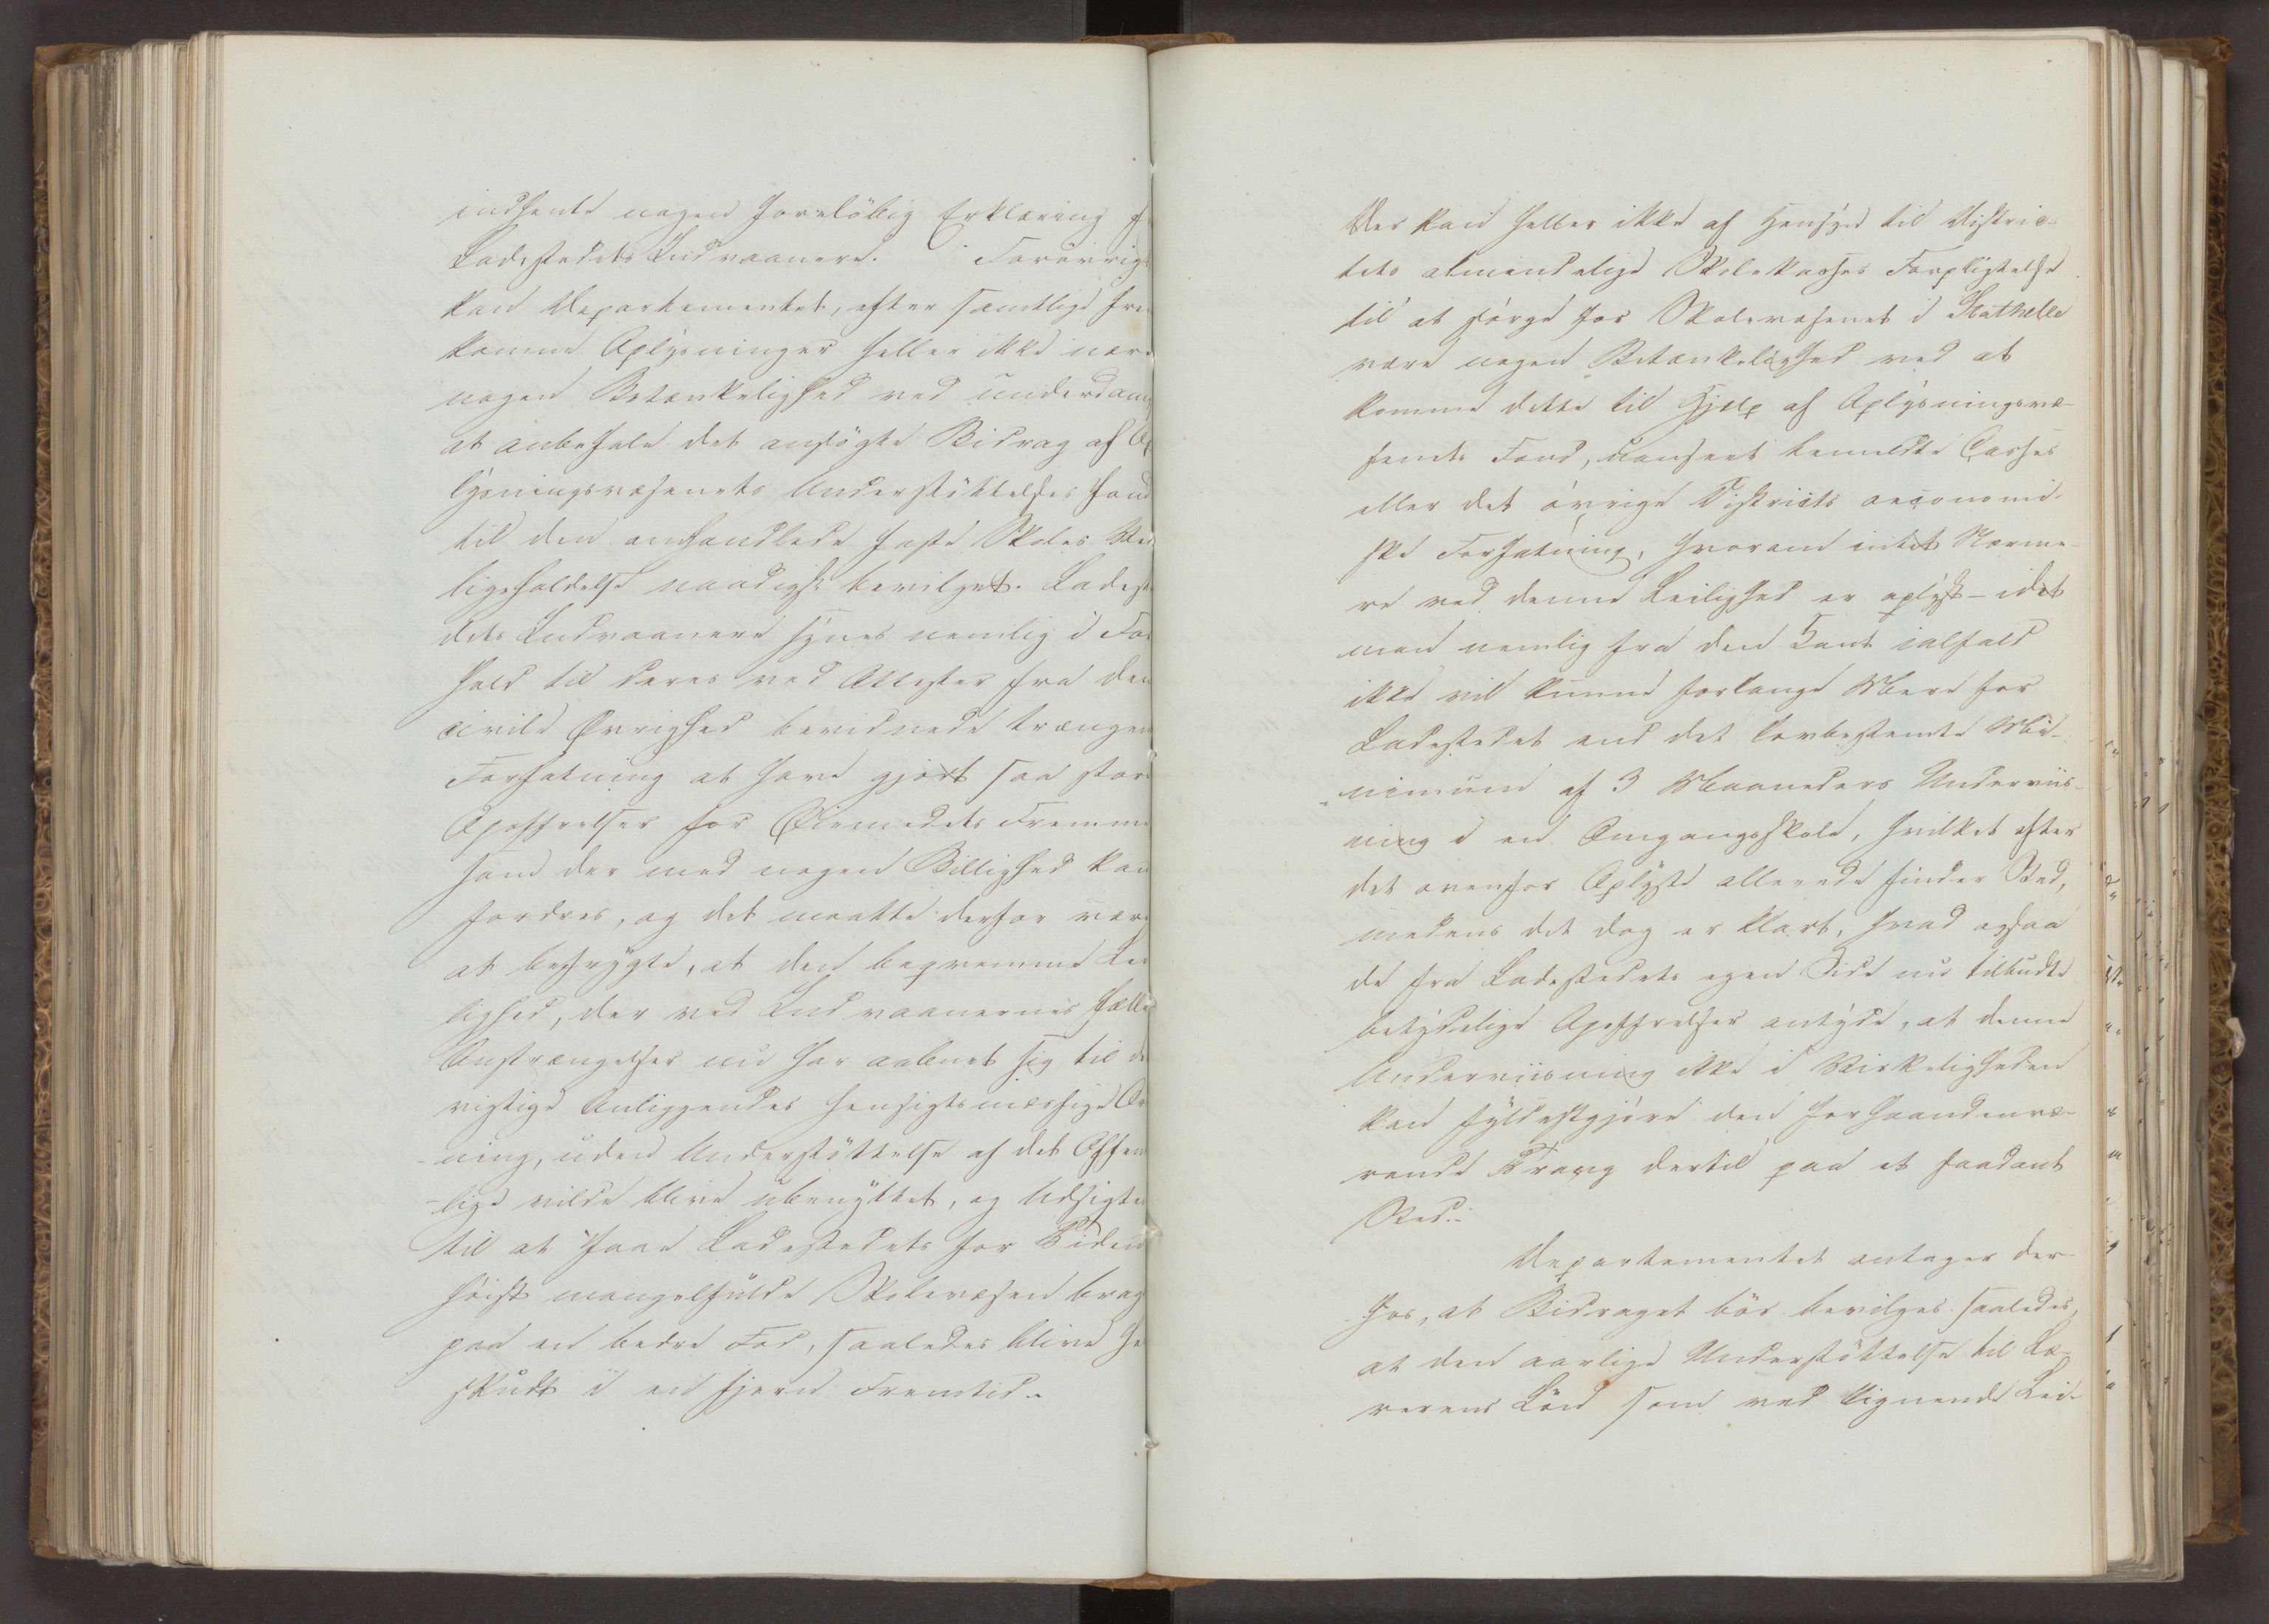 indhente nogen foreløbig Erklæring fr
Ladestedets Indvaanere. Forøvrigt
kan Departementet, efter samtlige fre
komne Oplysninger heller ikke nære
nogen Betænkelighed ved underdanig
at anbefale det ansøgte Bidrag af Op
lysningsvæsenets Understøttelses Fond
til den omhandlede faste Skoles Ved
ligeholdelse naadigst bevilget. Ladeste
dets Indvaanere synes nemlig i For
hold til deres ved Attester fra den
civile Øvrighed bevidnede trængen
Forfatning at have gjort saa store
Opoffrelser for Øiemedets Fremme
som der med nogen Billighed kan
fordres, og det maatte derfor være
at befrygte, at den beqvemme Lei
lighed, der ved Indvaanernes fælle
Anstrængelser nu har aabnet sig til de
vigtige Anliggendes hensigtsmæssige Or
ning, uden Understøttelse af det Offen
lige vilde blive ubenyttet, og Udsigten
til at faae Ladestedets for Tiden
høist mangelfulde Skolevæsen brag
paa en bedre Fod, saaledes blive he
skudt i en fjern Fremtid.
Der kan heller ikke af Hensyn til Distric-
tets almindelige Skolekasses Forpligtelse
til at sørge for Skolevæsenet i Stathelle
være nogen Betænkelighed ved at
komme dette til Hjelp af Oplysningsvæ-
senets Fond, uanseet bemeldte Casses
eller det øvrige Districts oeconomi-
ske Forfatning, hvorom intet Nærme-
re ved denne Leilighed er oplyst – idet
man nemlig fra den Kant ialfald
ikke vil kunne forlange Mere for
Ladestedet end det lovbestemte Mi-
nimum af 3 Maaneders Underviis-
ning i en Omgangsskole, hvilket efter
det ovenfor Oplyste allerede finder Sted,
medens det dog er klart, hvad ogsaa
de fra Ladestedets egen Side nu tilbudte
betydelige Opoffrelser antyde, at denne
Underviisning ikke i Virkeligheden
kan fyldestgjøre den forhaandenvæ-
rende Trang dertil paa et saadant
Sted.
Departementet antager der-
for, at Bidraget bør bevilges saaledes,
at den aarlige Understøttelse til Læ-
rerens Løn som ved lignende Lei-